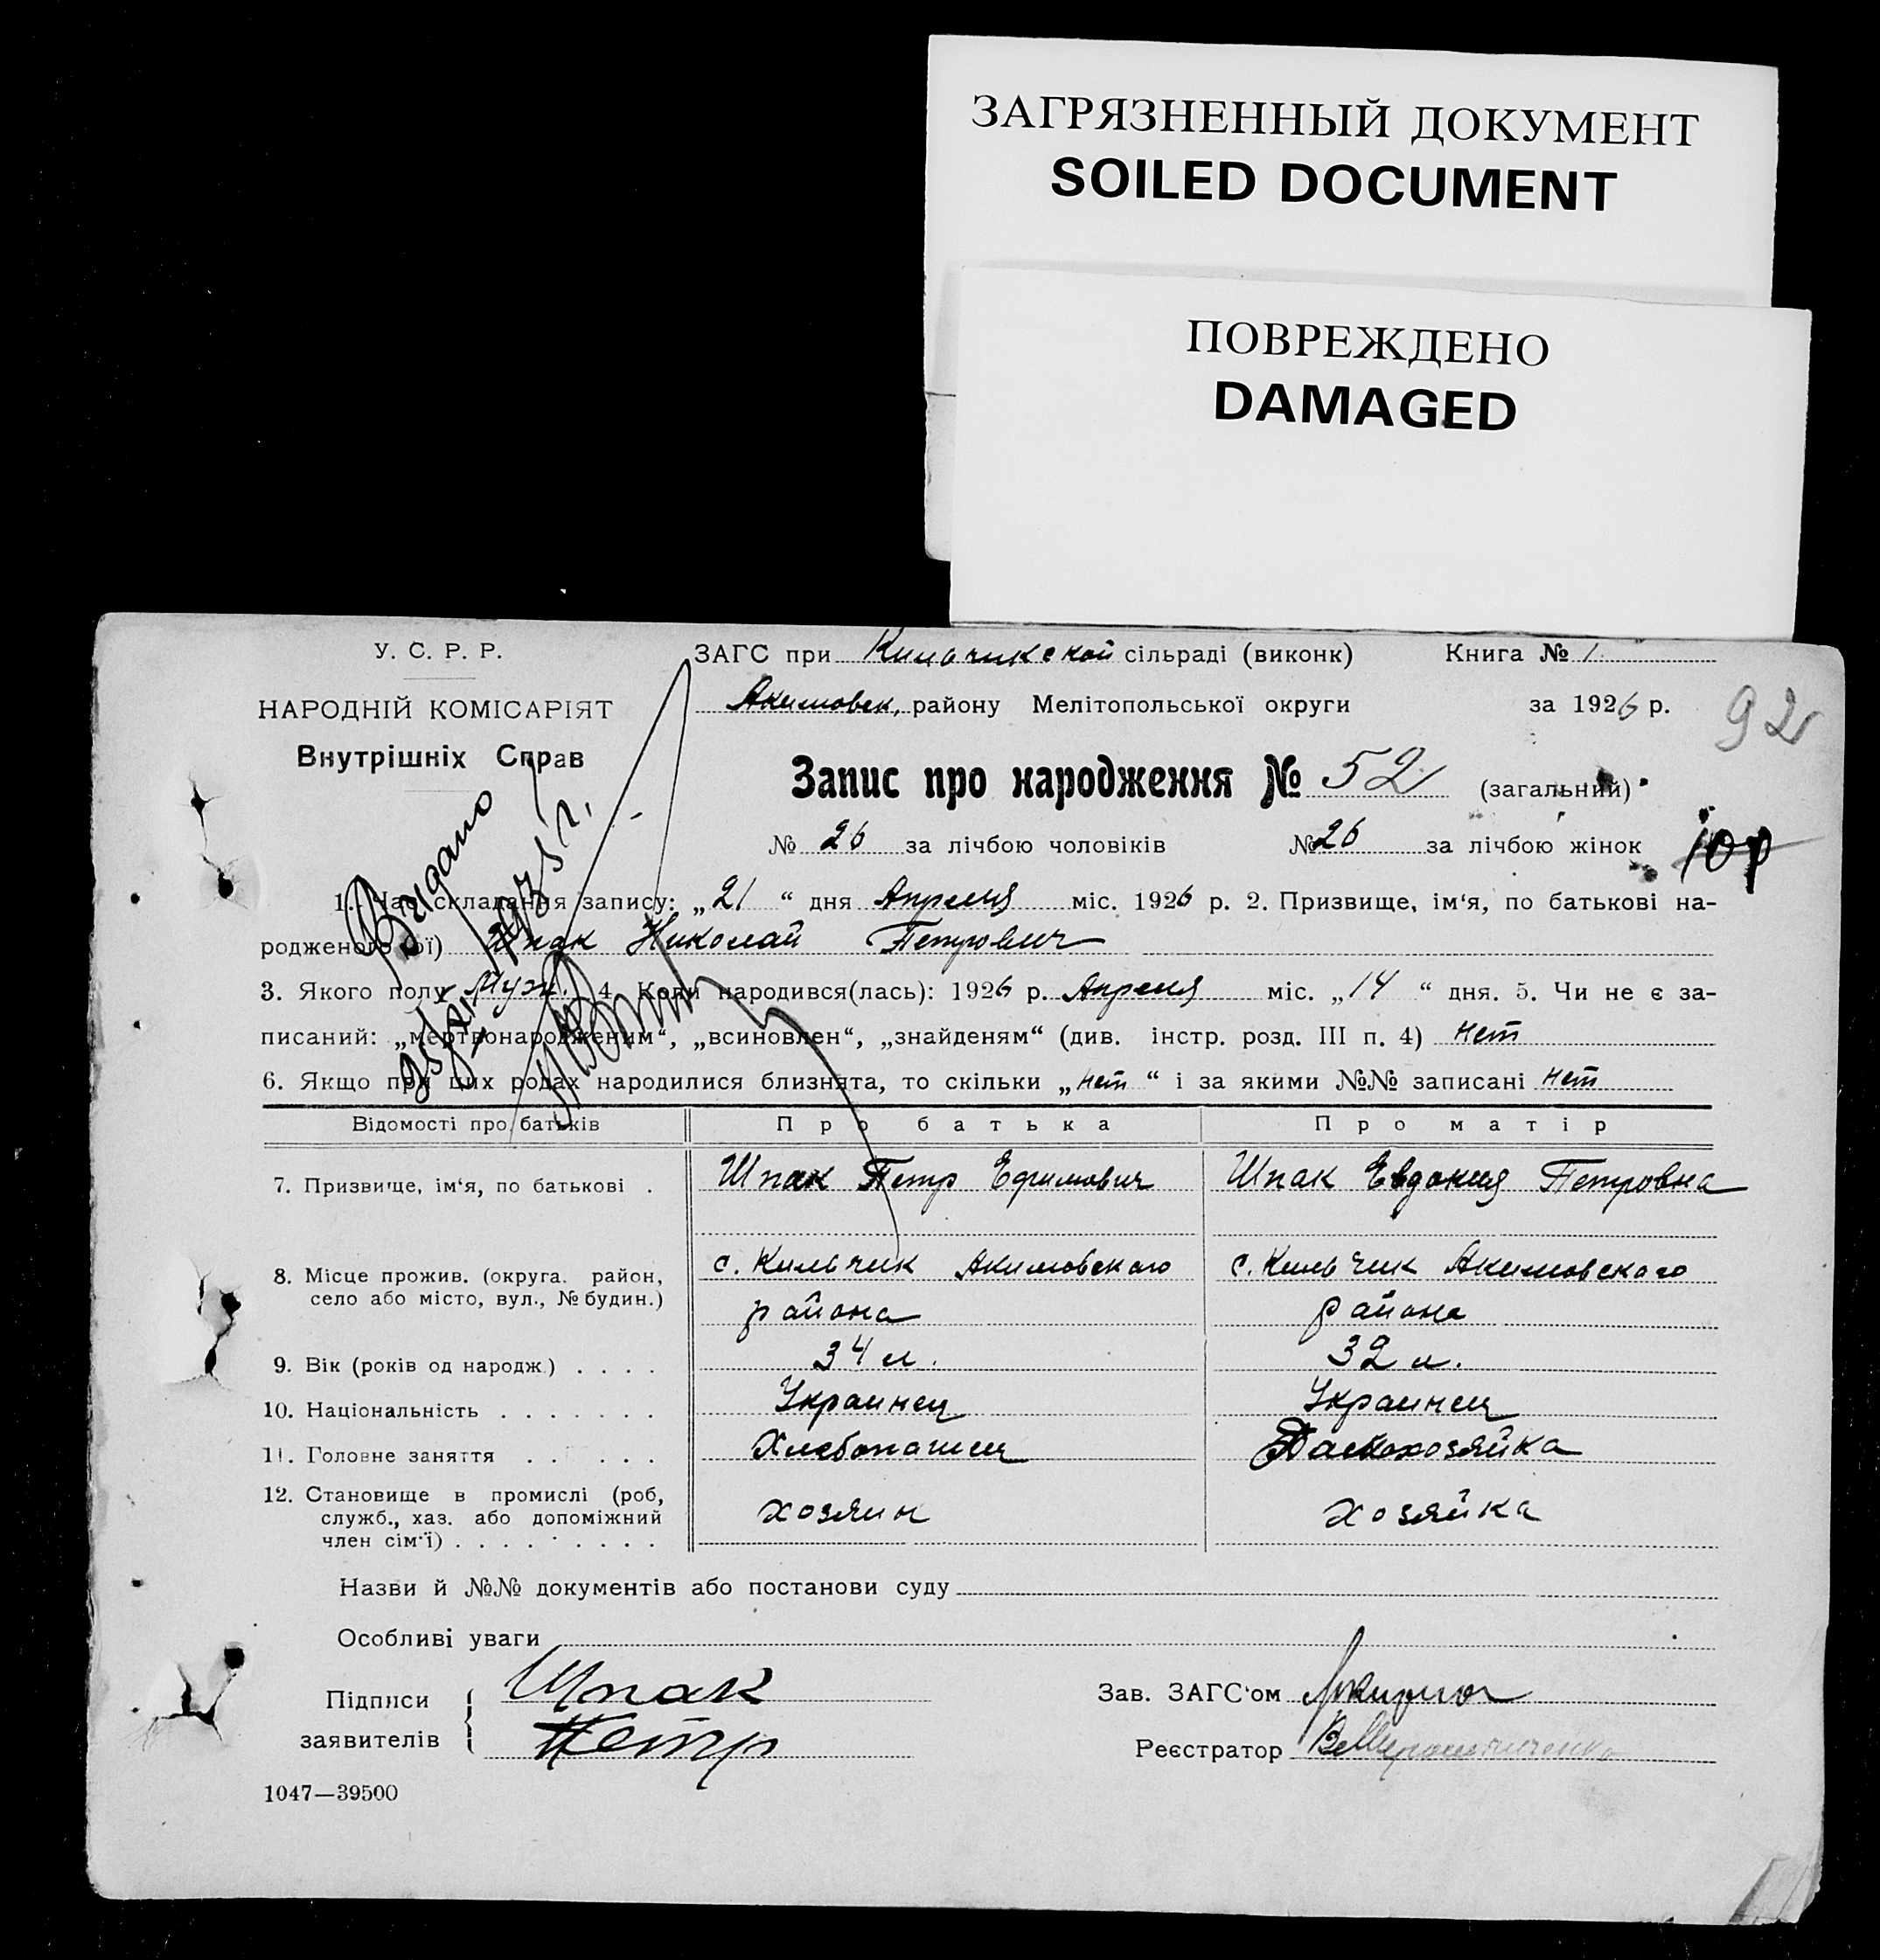 ЗАГРЯЗНЕННЫЙ ДОКУМЕНТ
SOILED DOCUMENT
ПОВРЕЖДЕНО
DAMAGED
У. С. Р. Р.
НАРОДНІЙ КОМІСАРІЯТ
Внутрішніх Справ
ЗАГС при Кильчикской сільраді (виконк) Книга № 1
Акимовск. району Мелітопольської округи за 1926 р.
92
Запис про народження № 52 (загальний)
№ 26 за лічбою чоловіків № 26 за лічбою жінок
Видано
1. Час складання запису: „21“ дня Апреля міс. 1926 р. 2. Призвище, ім‘я, по батькові на-
родженого (ої) Шпак Николай Петрович
3. Якого полу Муж. 4. Коли народився(лась): 1926 р. Апреля міс. „14“ дня. 5. Чи не є за-
писаний: „мертвонародженим“, „всиновлен“, „знайденям“ (див. інстр. розд. III п. 4) нет
6. Якщо при цих родах народилися близнята, то скільки „нет“ і за якими №№ записані нет
Відомості про батьків Про батька Про матір
7. Призвище, ім‘я, по батькові . Шпак Петр Ефимович Шпак Евдокия Петровна
8. Місце прожив. (округа. район, село або місто, вул., № будин.) с. Кильчик Акимовского района с. Кильчик Акимовского района
9. Вік (років од народж.) . . . . 34 л. 32 л.
10. Національність . . . . . . . Украинец Украинец
11. Головне заняття . . . . . Хлебопашец Домохозяйка
12. Становище в промислі (роб, служб., хаз. або допоміжний член сім‘ї) . . . . . . . . . хозяин хозяйка
Назви й №№ документів або постанови суду
Особливі уваги
Підписи заявителів Шпак Петр
Зав. ЗАГС‘ом
Реєстратор
1047—39500